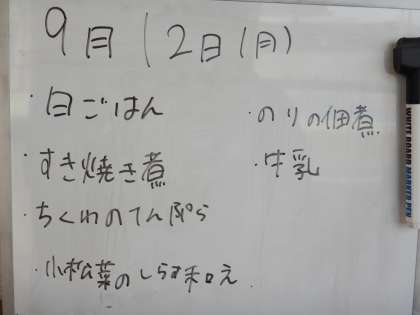 9月12日(月)
・白ごはん
・すき焼き煮
・ちくわのてんぷら
・小松菜のしらす和え
・のりの佃煮
・牛乳
WHITE BOARD MARKER PEN